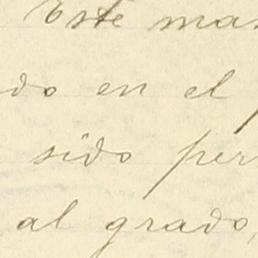 Este man
do en el
sido per
al grado,